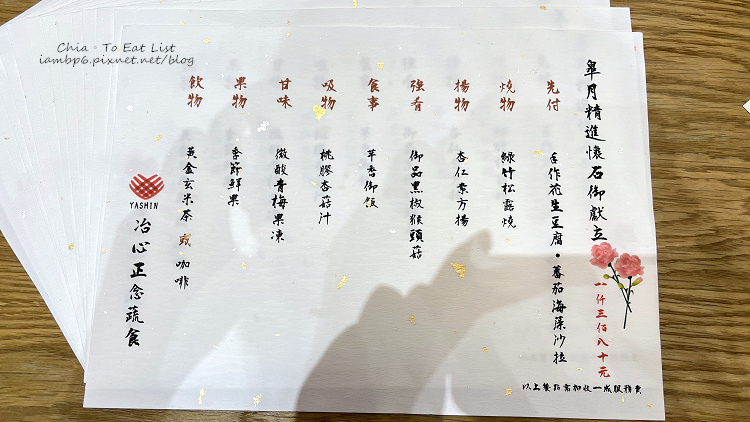 Chia。To Eat List
iambp6.pixnet.net/blog
皐月精進懷石御献立
一仟三佰八十元
先付
手作花生豆腐・蕃茄海藻沙拉
燒物
綠竹松露燒
揚物
杏仁素方揚
強肴
御品黑椒猴頭菇
食事
香御飯
吸物
桃膠杏菇汁
甘味
微酸青梅果凍
果物
季節鮮果
飲物
黃金玄米茶 或 咖啡
YASMIN
冶心正念蔬食
以上餐點需加收一成服務費